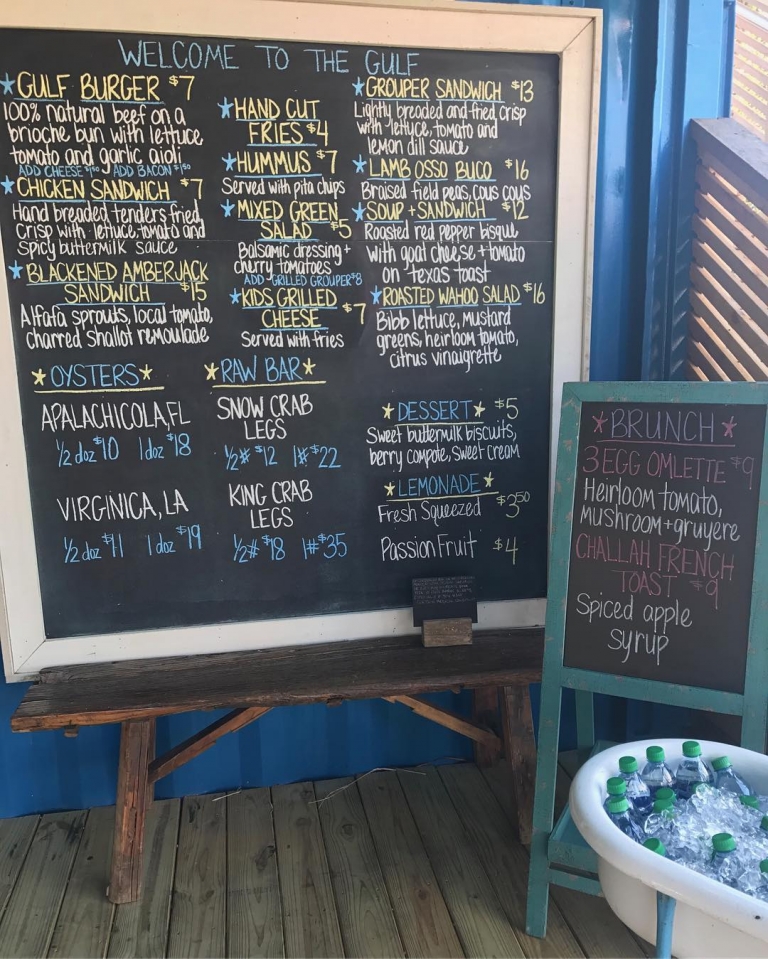 WELCOME TO THE GULF
GULF BURGER $7
100% natural beef on a
brioche bun with lettuce
tomato and garlic aioli
ADD CHEESE $1.50 ADD BACON $1.50
CHICKEN SANDWICH $7
Hand breaded tenders fried
crisp with lettuce, tomato and
spicy buttermilk sauce
BLACKENED AMBERJACK
SANDWICH $15
Alfafa sprouts, local tomato,
charred shallot remoulade
HAND CUT
FRIES $4
HUMMUS $7
Served with pita chips
MIXED GREEN
SALAD $5
Balsamic dressing +
cherry tomatoes
ADD GRILLED GROUPER $8
KIDS GRILLED
CHEESE $7
Served with fries
GROUPER SANDWICH $13
Lightly breaded and fried crisp
with lettuce, tomato and
lemon dill sauce
LAMB OSSO BUCO $16
Braised field peas, cous cous
SOUP + SANDWICH $12
Roasted red pepper bisque
with goat cheese + tomato
on texas toast
ROASTED WAHOO SALAD $16
Bibb lettuce, mustard
greens, heirloom tomato,
citrus vinaigrette
OYSTERS
APALACHICOLA, FL
1/2 doz $10 1 doz $18
VIRGINICA, LA
1/2 doz $11 1 doz $19
RAW BAR
SNOW CRAB
LEGS
1/2# $12 1# $22
KING CRAB
LEGS
1/2# $18 1# $35
DESSERT $5
Sweet buttermilk biscuits,
berry compote, sweet cream
LEMONADE
Fresh Squeezed $3.50
Passion Fruit $4
BRUNCH
3 EGG OMLETTE $9
Heirloom tomato,
mushroom + gruyere
CHALLAH FRENCH
TOAST $9
Spiced apple
syrup